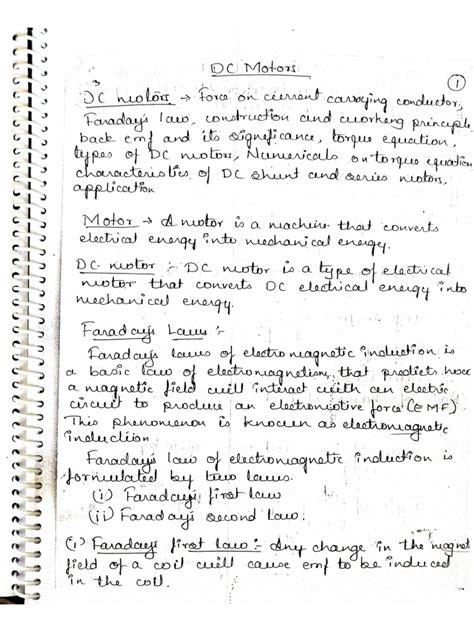 DC Motors
①
3
DC motors → Force on current carrying conductor,
Faraday's law, construction and working principle
back emf and its significance, torque equation,
types of DC motors, Numericals on torque equation
characteristics of DC shunt and series motors,
application
Motor → A motor is a machine that converts
electrical energy into mechanical energy.
DC motor :- DC motor is a type of electrical
motor that converts DC electrical energy into
mechanical energy.
Faradays Laws :-
Faraday's laws of electromagnetic induction is
a basic law of electromagnetism, that predicts how
a magnetic field will interact with an electric
circuit to produce an electromotive force (EMF)
This phenomenon is known as electromagnetic
induction
Faraday's law of electromagnetic induction is
formulated by two laws.
(i) Faraday's first law
(ii) Faraday's second law.
(i) Faraday's first law :- Any change in the magnet
field of a coil will cause emf to be induced
in the coil.